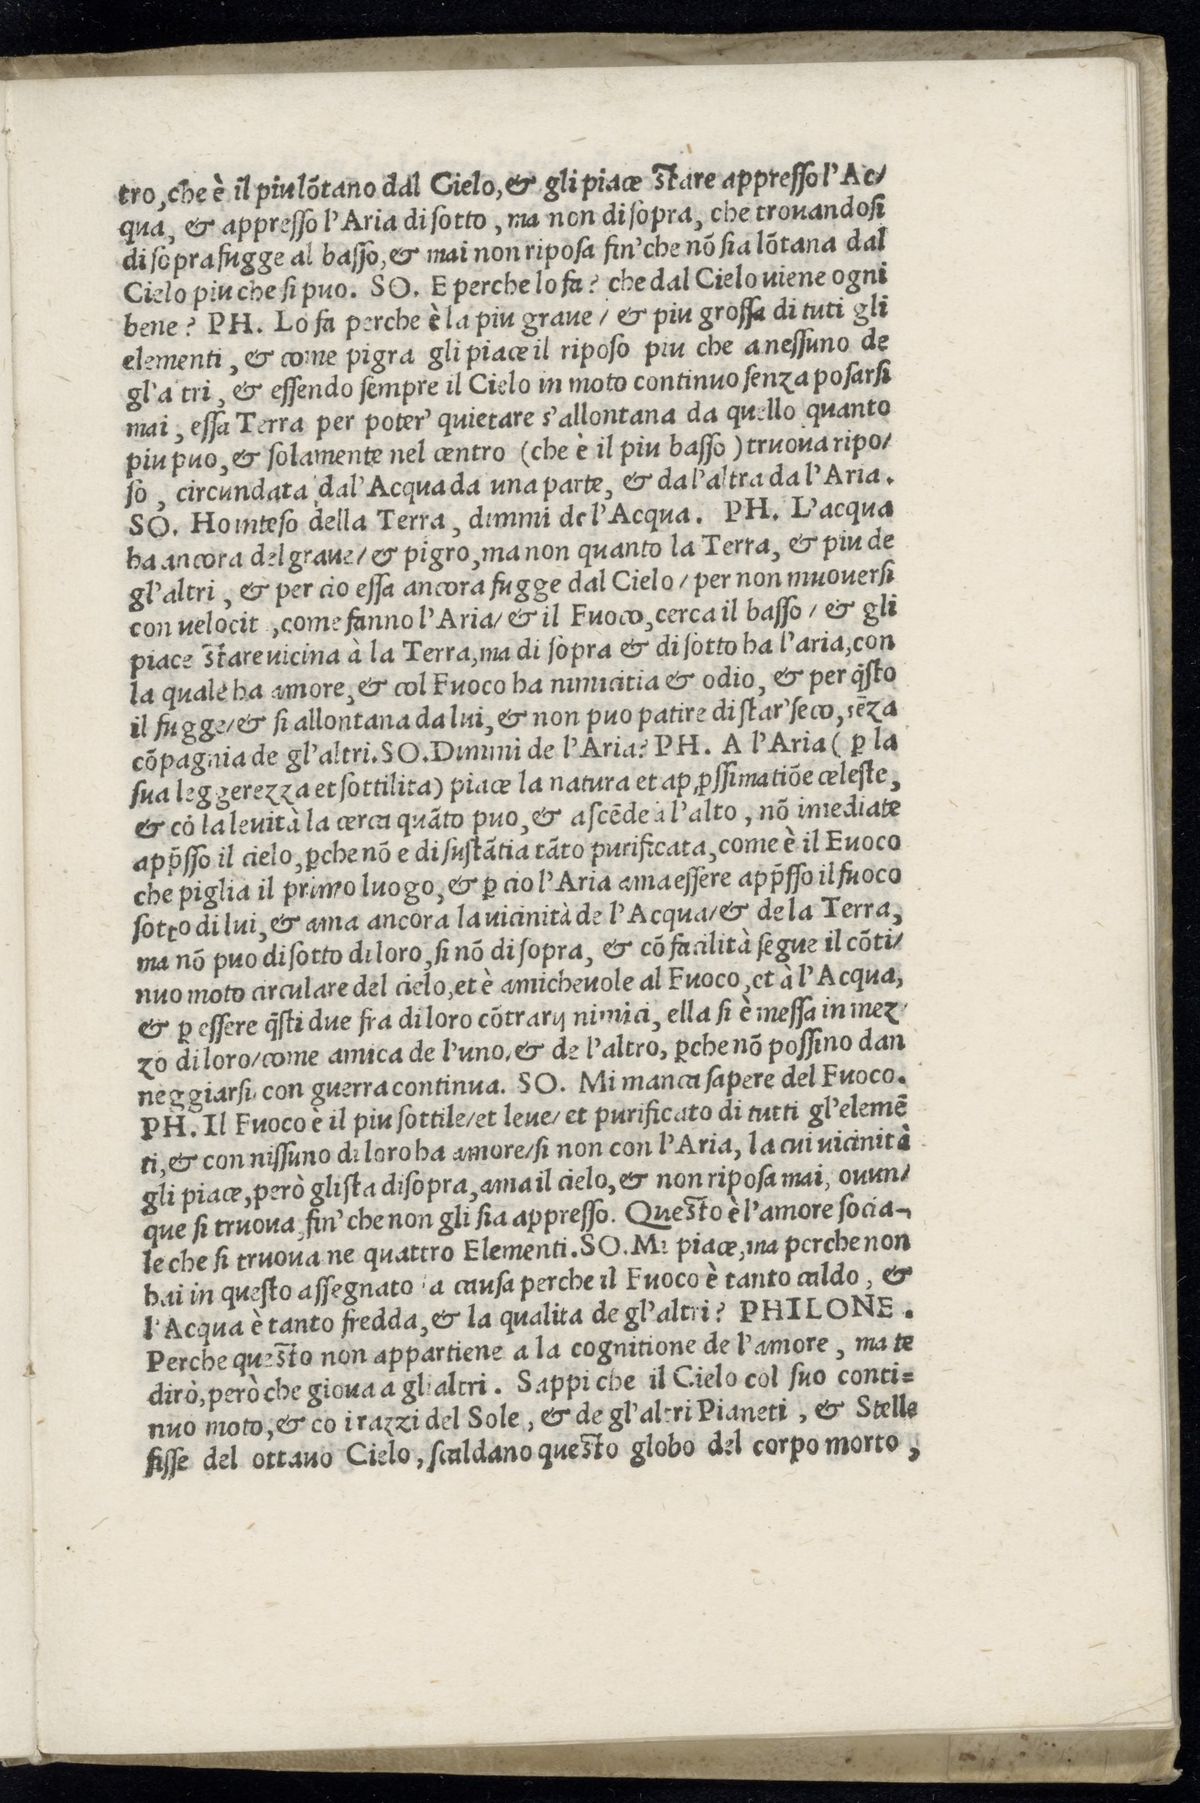 tro, che è il piu lõtano dal Cielo, & gli piace stare appresso l'Ac/
qua, & appresso l'Aria di sotto, ma non di sopra, che trouandosi
di sopra fugge al basso, & mai non riposa fin' che nõ sia lõtana dal
Cielo piu che si puo. SO. E perche lo fa? che dal Cielo uiene ogni
bene? PH. Lo fa perche è la piu graue / & piu grossa di tuti gli
elementi, & come pigra gli piace il riposo piu che a nessuno de
gl'a tri, & essendo sempre il Cielo in moto continuo senza posarsi
mai, essa Terra per poter' quietare s'allontana da quello quanto
piu puo, & solamente nel centro (che è il piu basso) truoua ripo/
so, circundata dal'Acqua da una parte, & da l'altra da l'Aria.
SO. Ho inteso della Terra, dimmi de l'Acqua. PH. L'acqua
ha ancora del graue / & pigro, ma non quanto la Terra, & piu de
gl'altri, & per cio essa ancora fugge dal Cielo / per non muouersi
con uelocit , come fanno l'Aria / & il Fuoco, cerca il basso / & gli
piace stare uicina à la Terra, ma di sopra & di sotto ha l'aria, con
la quale ha amore, & col Fuoco ha nimicitia & odio, & per q̃sto
il fugge / & si allontana da lui, & non puo patire di star' seco, sẽza
cõpagnia de gl'altri. SO. Dimmi de l'Aria? PH. A l'Aria ( ꝑ la
sua leggerezza et sottilita) piace la natura et apꝓssimatiõe celeste,
& cõ la leuità la cerca quãto puo, & ascẽde à l'alto, nõ imediate
app̃sso il cielo, ꝑche nõ e di sustãtia tãto purificata, come è il Fuoco
che piglia il primo luogo, & ꝑ cio l'Aria ama essere app̃sso il fuoco
sotto di lui, & ama ancora la uicinità de l'Acqua / & de la Terra,
ma nõ puo di sotto di loro, si nõ di sopra, & cõ facilità segue il cõti/
nuo moto circulare del cielo, et è amicheuole al Fuoco, et à l'Acqua,
& ꝑ essere q̃sti due fra di loro cõtrarij nimici, ella si è messa in mez/
zo di loro / come amica de l'uno, & de l'altro, ꝑche nõ possino dan
neggiarsi con guerra continua. SO. Mi manca sapere del Fuoco.
PH. Il Fuoco è il piu sottile / et leue / et purificato di tutti gl'elemẽ
ti, & con nissuno di loro ha amore / si non con l'Aria, la cui uicinità
gli piace, però gli sta disopra, ama il cielo, & non riposa mai, ouun/
que si truoua, fin' che non gli sia appresso. Questo è l'amore socia-
le che si truoua ne quattro Elementi. SO. Mi piace, ma perche non
hai in questo assegnato la causa perche il Fuoco è tanto caldo, &
l'Acqua è tanto fredda, & la qualita de gl'altri? PHILONE.
Perche questo non appartiene a la cognitione de l'amore, ma te
dirò, però che gioua a gli altri. Sappi che il Cielo col suo conti=
nuo moto, & co i razzi del Sole, & de gl'altri Pianeti, & Stelle
fisse del ottauo Cielo, scaldano questo globo del corpo morto,